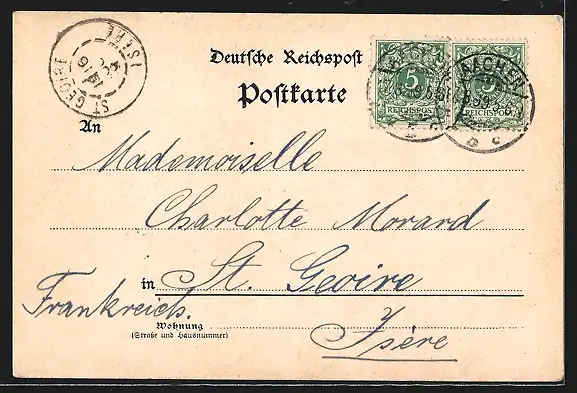 Deutsche Reichspost
Postkarte
5
REICHSPOST
5
REICHSPOST
AACHEN
ST GEOIRE
ISÈRE
An
Mademoiselle
Charlotte Morard
in St. Geoire
Frankreich.
Isère
Wohnung
(Straße und Hausnummer)